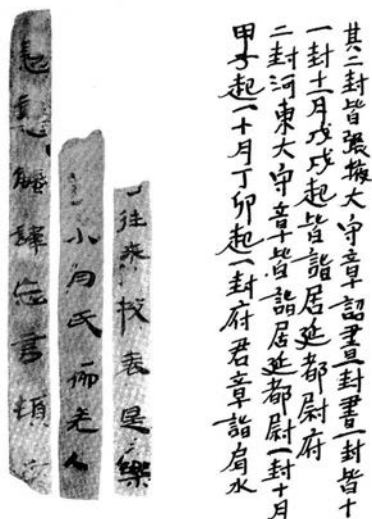 其二封皆張掖大守章詔書一封書一封皆十
一封十一月戊戌起皆詣居延都尉府
二封河東大守章皆詣居延都尉一封十月
甲子起一十月丁卯起一封府君章詣肩水
往来校表是樂
小月氏羌人
言